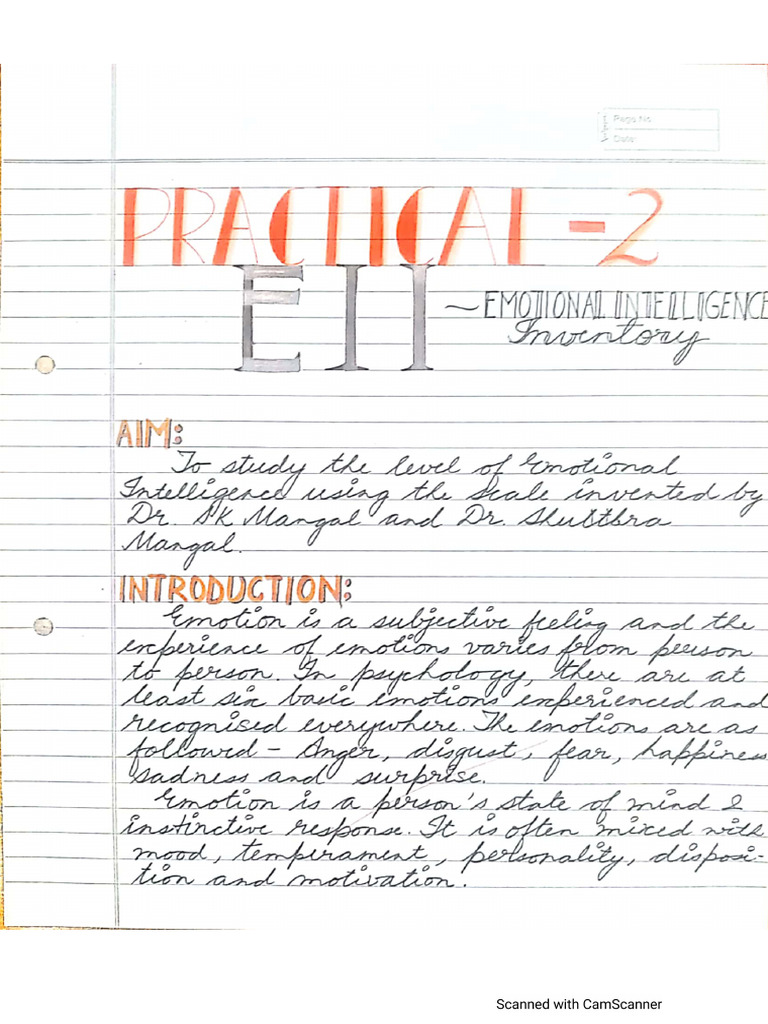 Page No.
Date:
PRACTICAL - 2
EII
~ EMOTIONAL INTELLIGENCE
Inventory
AIM:
To study the level of Emotional
Intelligence using the scale invented by
Dr. SK Mangal and Dr. Shubthra
Mangal.
INTRODUCTION:
Emotion is a subjective feeling and the
experience of emotions varies from person
to person. In psychology, there are at
least six basic emotions experienced and
recognised everywhere. The emotions are as
followed - Anger, disgust, fear, happiness
sadness and surprise.
Emotion is a person's state of mind &
instinctive response. It is often mixed with
mood, temperament, personality, disposi-
tion and motivation.
Scanned with CamScanner